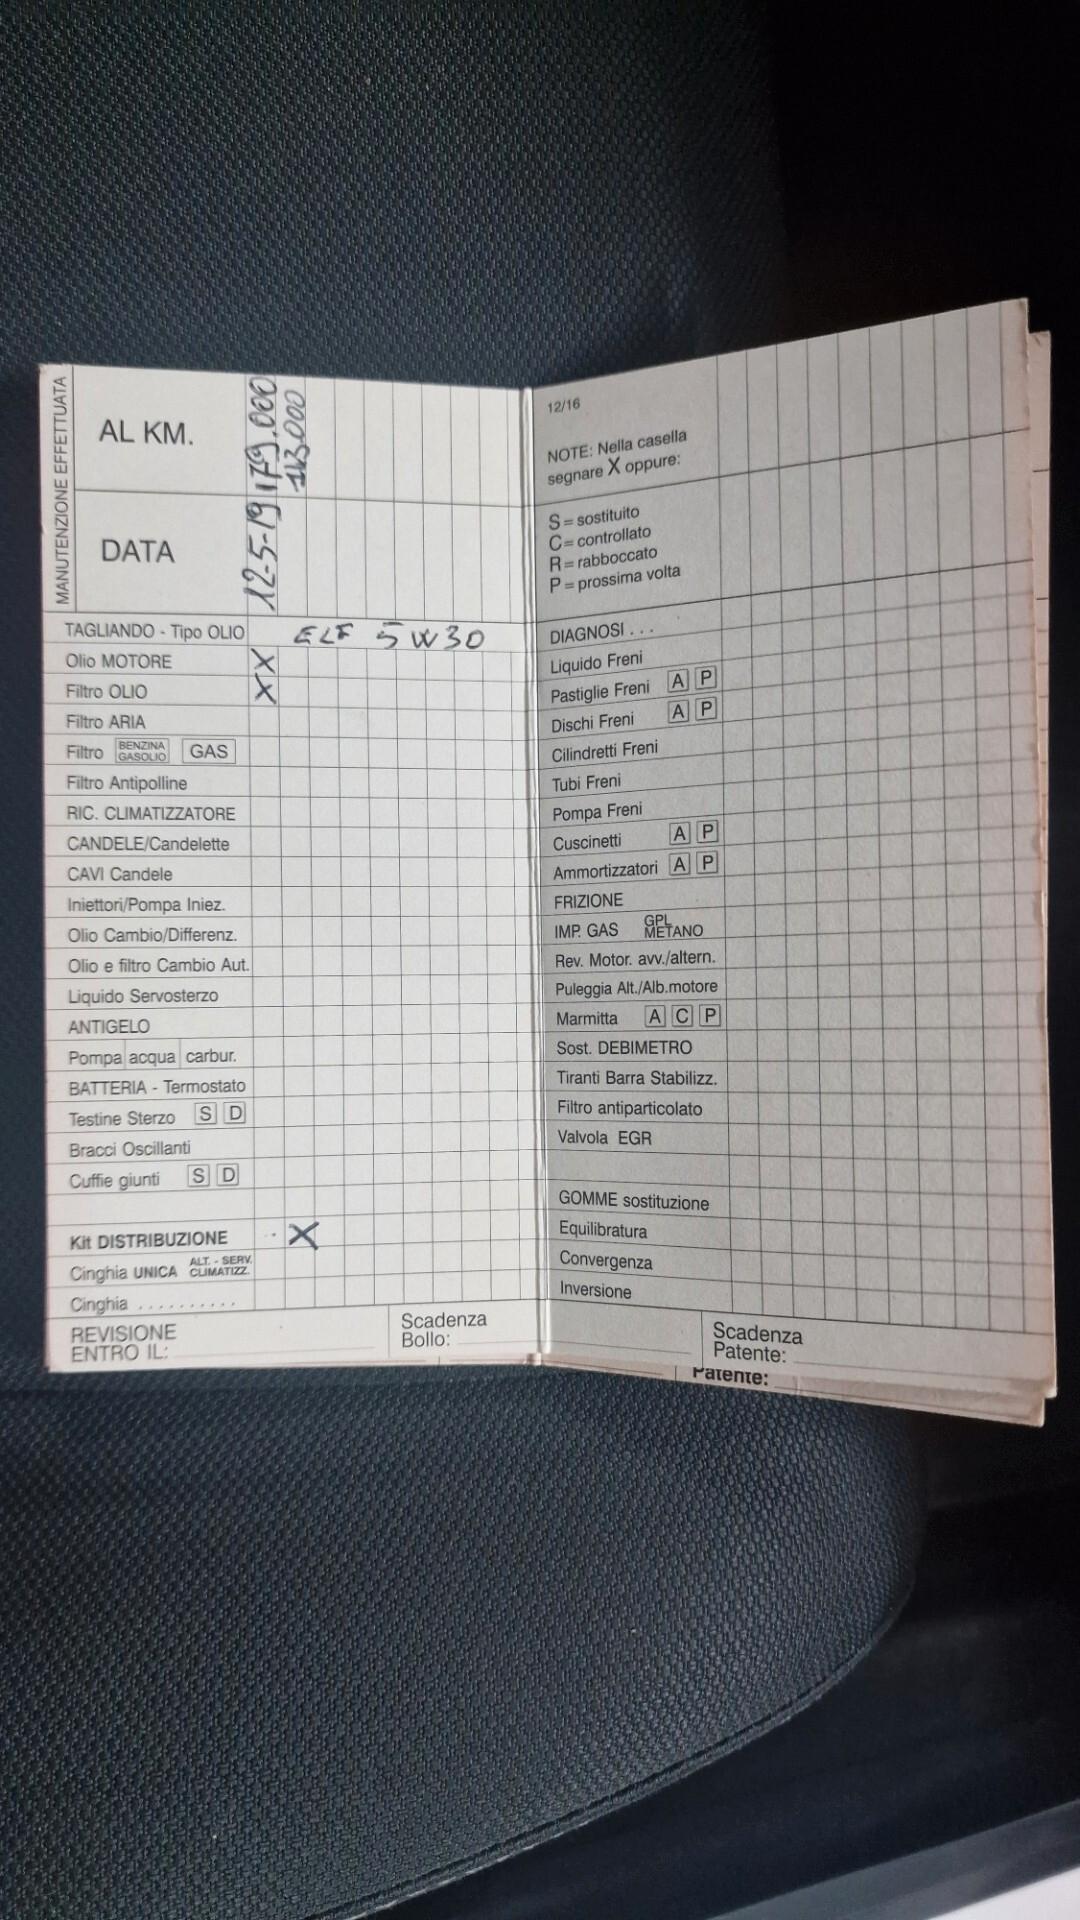 MANUTENZIONE EFFETTUATA
AL KM.
179.000
113.000
DATA
12-5-19
TAGLIANDO - Tipo OLIO ELF 5W30
Olio MOTORE X
Filtro OLIO X
Filtro ARIA
Filtro BENZINA GASOLIO GAS
Filtro Antipolline
RIC. CLIMATIZZATORE
CANDELE/Candelette
CAVI Candele
Iniettori/Pompa Iniez.
Olio Cambio/Differenz.
Olio e filtro Cambio Aut.
Liquido Servosterzo
ANTIGELO
Pompa acqua carbur.
BATTERIA - Termostato
Testine Sterzo S D
Bracci Oscillanti
Cuffie giunti S D
Kit DISTRIBUZIONE X
Cinghia UNICA ALT. - SERV. CLIMATIZZ.
Cinghia ..........
REVISIONE
ENTRO IL:
Scadenza
Bollo:
12/16
NOTE: Nella casella
segnare X oppure:
S = sostituito
C = controllato
R = rabboccato
P = prossima volta
DIAGNOSI ...
Liquido Freni
Pastiglie Freni A P
Dischi Freni A P
Cilindretti Freni
Tubi Freni
Pompa Freni
Cuscinetti A P
Ammortizzatori A P
FRIZIONE
IMP. GAS GPL METANO
Rev. Motor. avv./altern.
Puleggia Alt./Alb.motore
Marmitta A C P
Sost. DEBIMETRO
Tiranti Barra Stabilizz.
Filtro antiparticolato
Valvola EGR
GOMME sostituzione
Equilibratura
Convergenza
Inversione
Scadenza
Patente:
Patente: